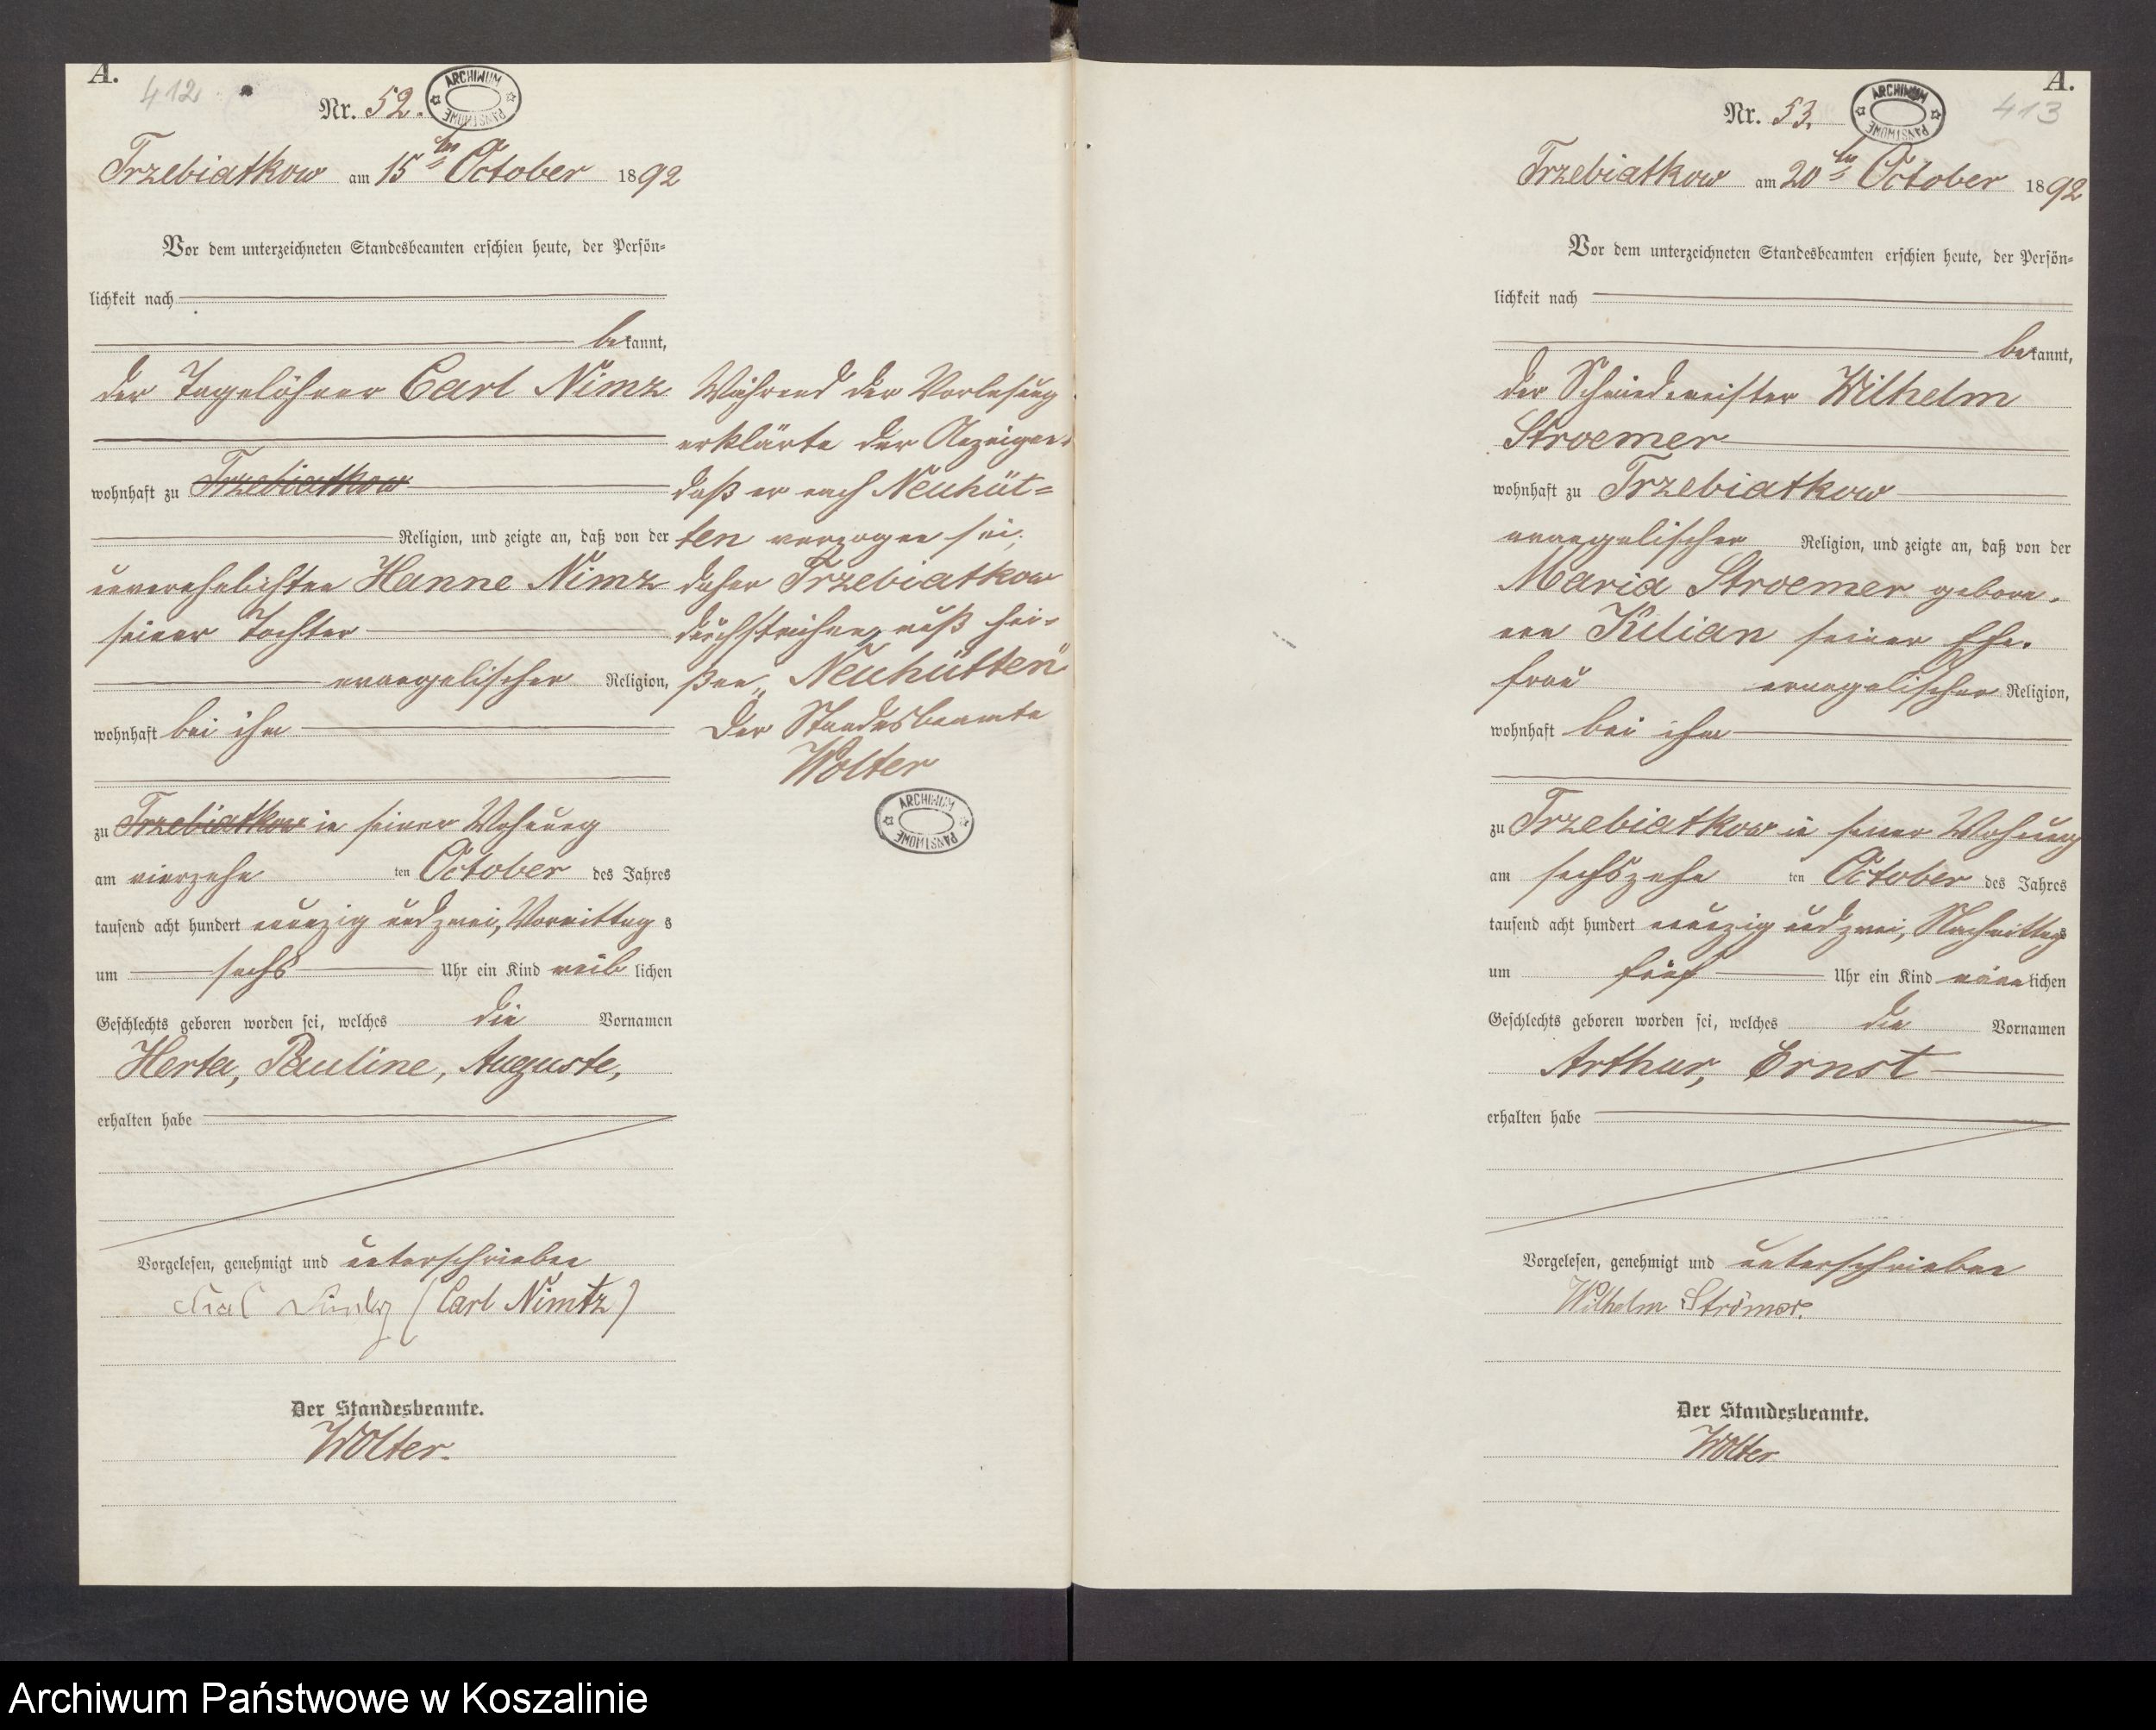 A.
412
Nr. 52.
ARCHIWUM PAŃSTWOWE
Trzebiatkow am 15ten October 1892
Vor dem unterzeichneten Standesbeamten erschien heute, der Persön=
lichkeit nach
bekannt,
der Tagelöhner Carl Nimz
wohnhaft zu Trzebiatkow
Religion, und zeigte an, daß von der
unverehelichten Hanne Nimz
seiner Tochter
evangelischer Religion,
wohnhaft bei ihm
zu Trzebiatkow in seiner Wohnung
am vierzehn ten October des Jahres
tausend acht hundert neunzig und zwei, Vormittag s
um sechs Uhr ein Kind weib lichen
Geschlechts geboren worden sei, welches die Vornamen
Herta, Pauline, Auguste,
erhalten habe
Vorgelesen, genehmigt und unterschrieben
(Carl Nimtz)
Der Standesbeamte.
Wolter.
Während der Vorlesung
erklärte der Anzeigen-
daß er nach Neuhüt=
ten verzogen sei,
daher Trzebiatkow
durchstrichen, muß hei-
ßen „Neuhütten"
Der Standesbeamte
Wolter
ARCHIWUM PAŃSTWOWE
A.
413
Nr. 53.
ARCHIWUM PAŃSTWOWE
Trzebiatkow am 20ten October 1892
Vor dem unterzeichneten Standesbeamten erschien heute, der Persön=
lichkeit nach
bekannt,
der Schmiedemeister Wilhelm
Stroemer
wohnhaft zu Trzebiatkow
evangelischer Religion, und zeigte an, daß von der
Maria Stroemer gebore-
nen Kulian seiner Ehe-
frau evangelischer Religion,
wohnhaft bei ihm
zu Trzebiatkow in seiner Wohnung
am sechszehn ten October des Jahres
tausend acht hundert neunzig und zwei, Nachmittags
um fünf Uhr ein Kind männlichen
Geschlechts geboren worden sei, welches die Vornamen
Arthur, Ernst
erhalten habe
Vorgelesen, genehmigt und unterschrieben
Wilhelm Strömer.
Der Standesbeamte.
Wolter
Archiwum Państwowe w Koszalinie